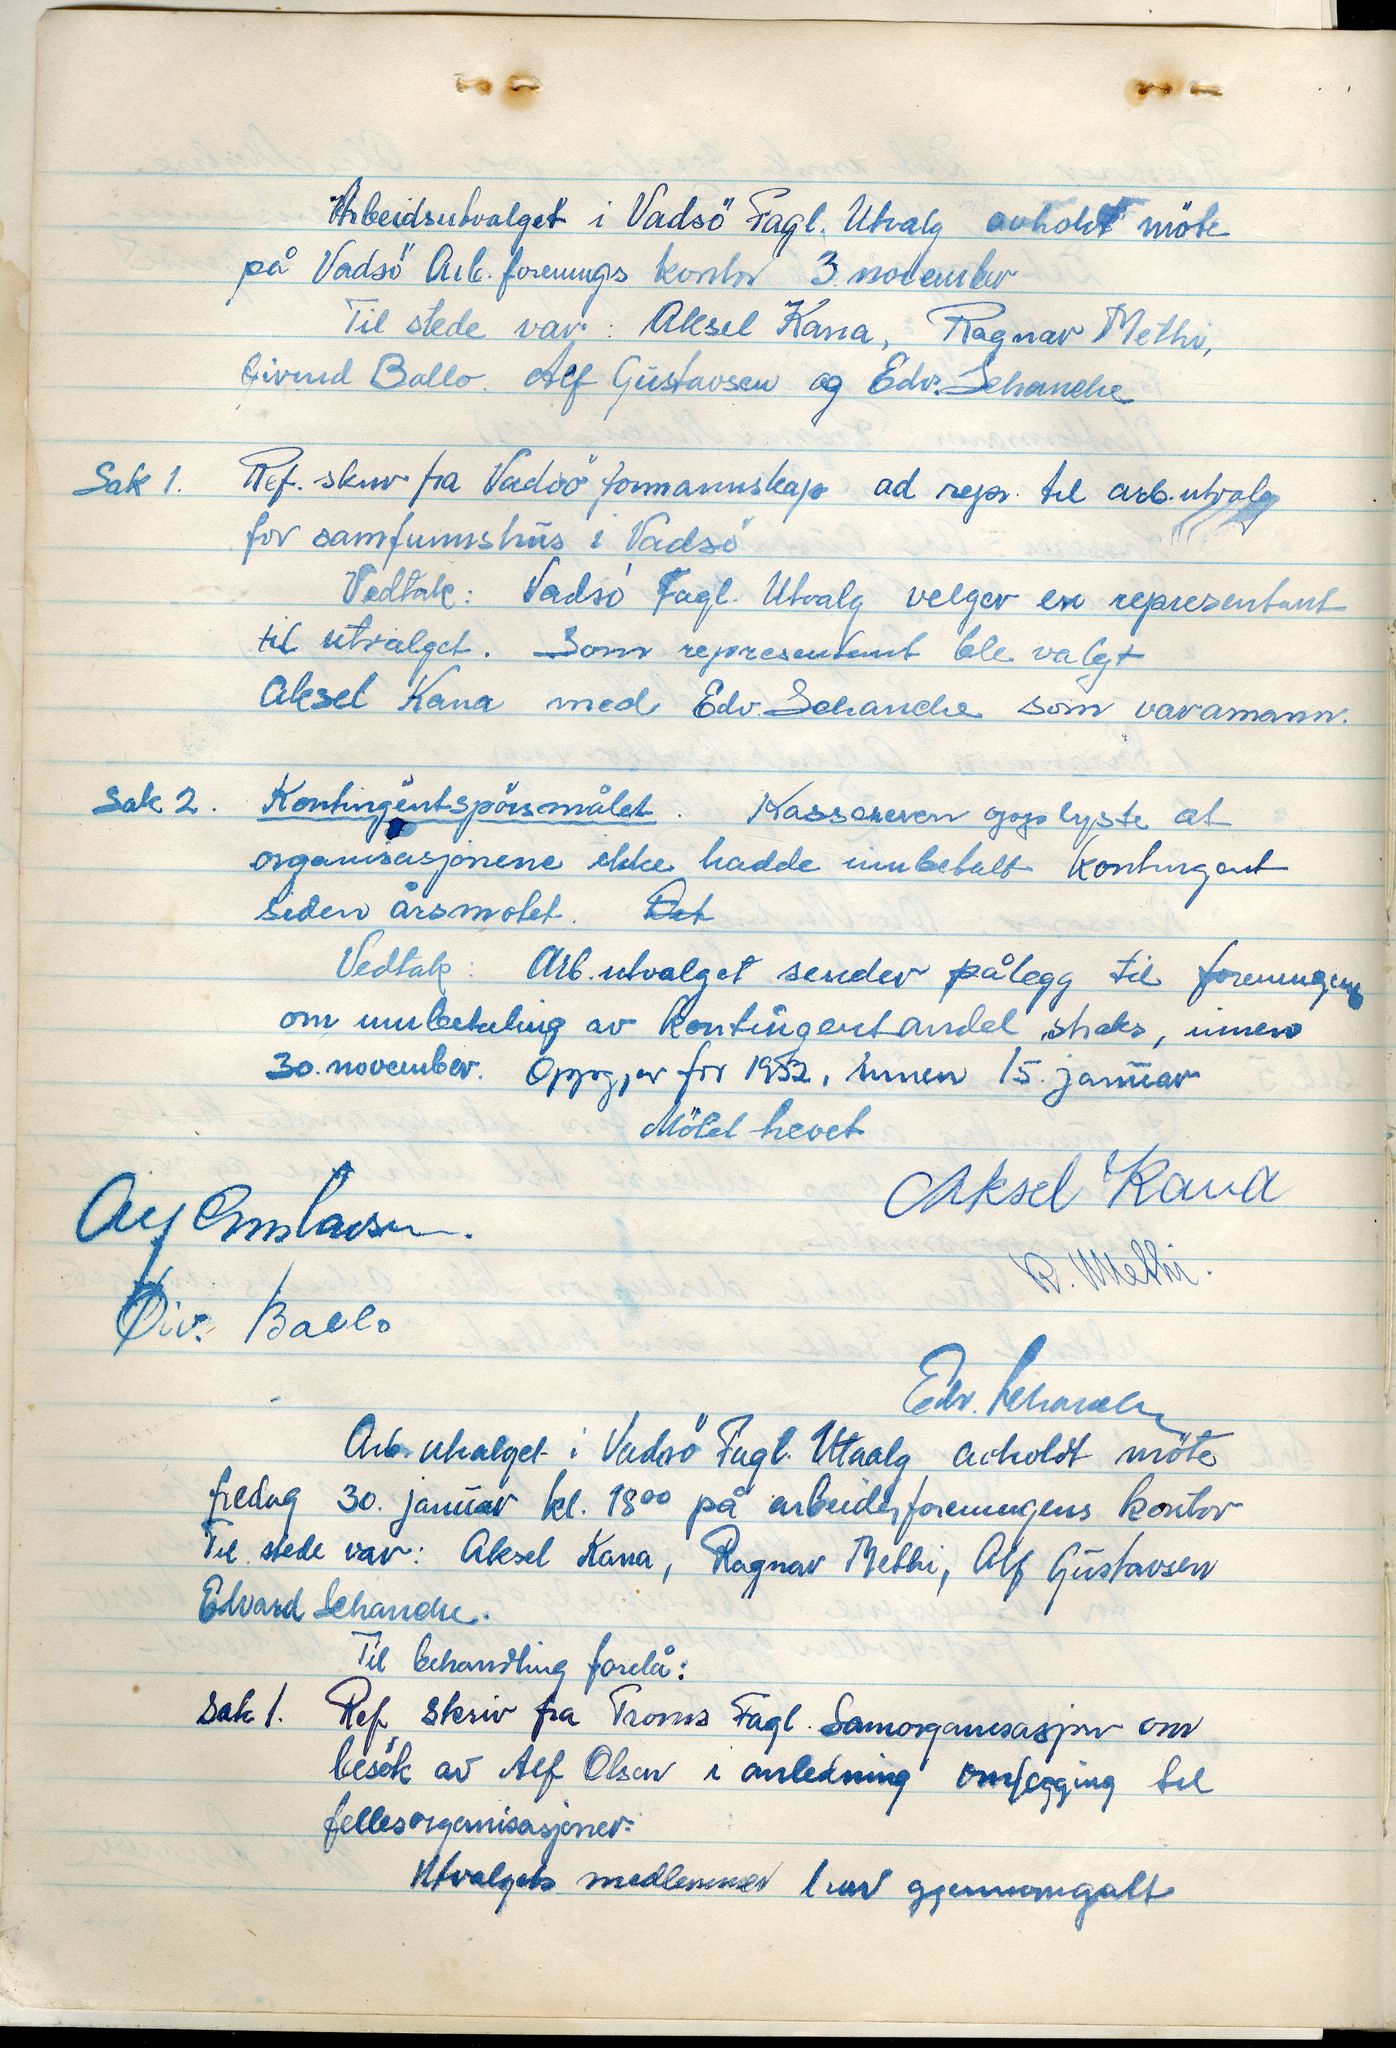 Arbeidsutvalget i Vadsö Fagl. Utvalg avholdt möte
på Vadsö Arb. forenings kontor 3 november
Til stede var: Aksel Kana, Ragnar Methi,
Eivind Ballo. Alf Gustavsen og Edv. Schanche
Sak 1. Ref. skriv fra Vadsö formannskap ad repr. til arb.utvalg
for samfunnshus i Vadsö
Vedtak: Vadsö Fagl. Utvalg velger en representant
til utvalget. Som representant ble valgt
Aksel Kana med Edv. Schanche som varamann.
Sak 2. Kontingentspörsmålet. Kassereren opplyste at
organisasjonene ikke hadde innbetalt kontingent
siden årsmötet. Det
Vedtak: Arb.utvalget sender pålegg til foreningene
om innbetaling av kontingentandel straks, innen
30. november. Oppgjör for 1952, innen 15. januar
Mötet hevet
Aksel Kana
Alf Gustavsen.
R. Methi.
Öiv. Ballo
Edv. Schanche
Arb. utvalget i Vadsö Fagl. Utvalg avholdt möte
fredag 30. januar kl. 18⁰⁰ på arbeiderforeningens kontor
Til stede var: Aksel Kana, Ragnar Methi, Alf Gustavsen
Edvard Schanche.
Til behandling forelå:
Sak 1. Ref. skriv fra Troms Fagl. Samorganisasjon om
besök av Alf Olsen i anledning omlegging til
fellesorganisasjoner.
Utvalgets medlemmer har gjennomgått